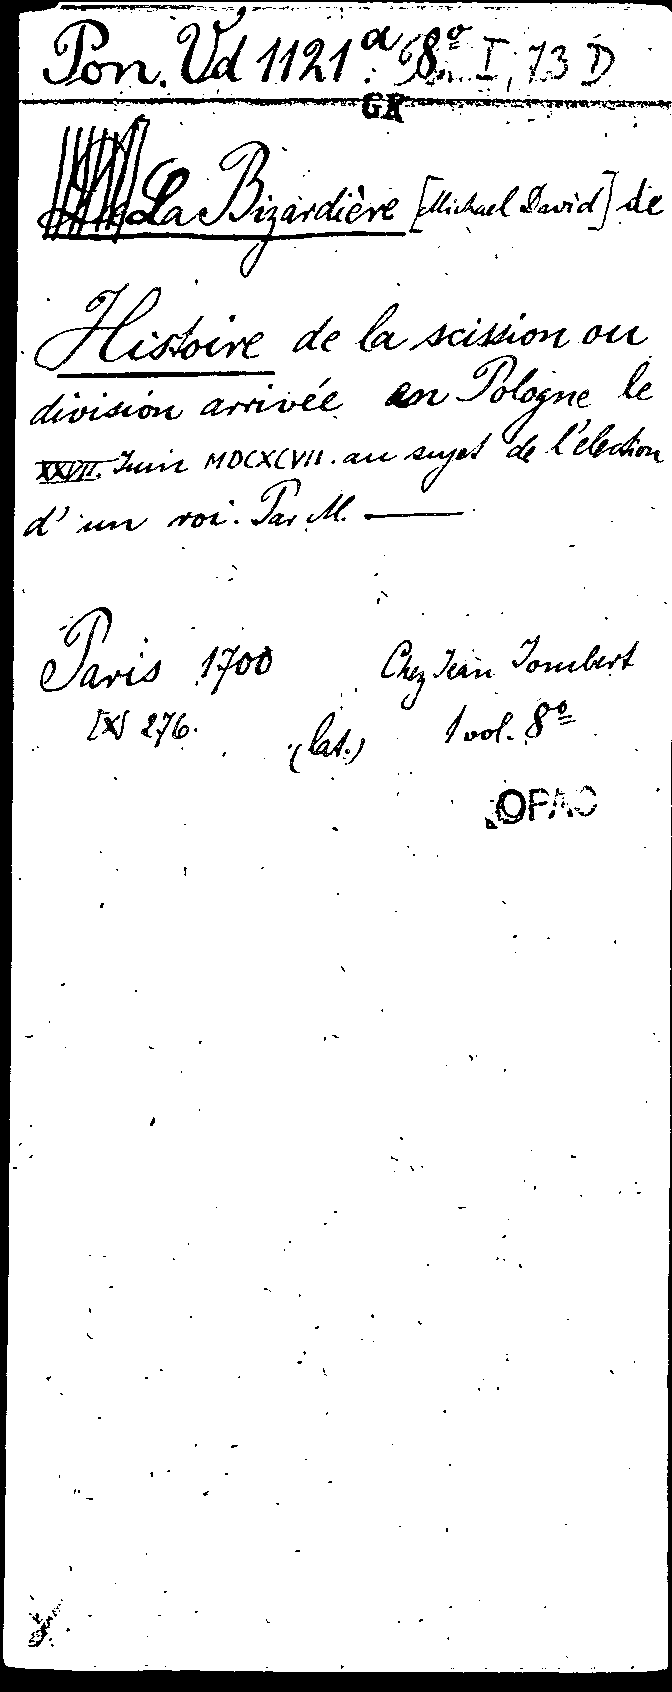 Pon. Vd 1121 a. 8º I, 73 D
GK
La Bizardière [Michael David] de
Histoire de la scission ou
division arrivée en Pologne le
XXVII. Juin MDCXCVII. au sujet de l'élection
d'un roi. Par M. ——
Paris 1700 Chez Jean Jombert
[X] 276. (lat.) 1 vol. 8º
OPAC